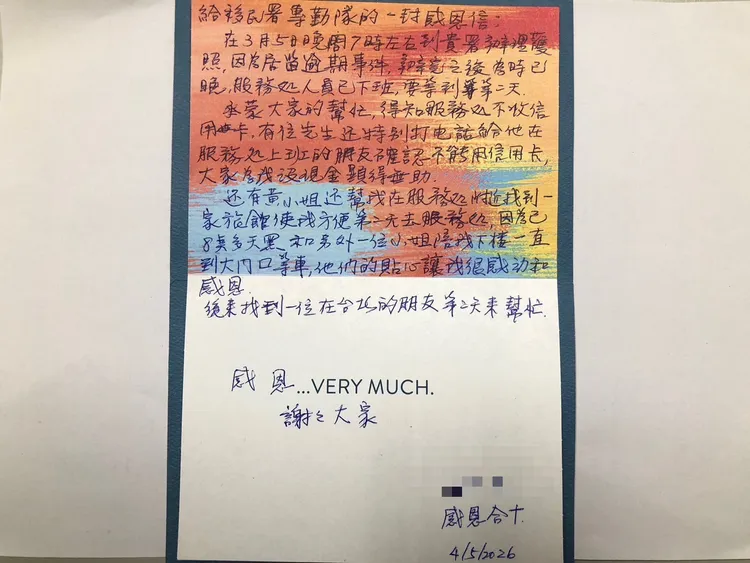 給移民署專勤隊的一封感恩信：
在3月5日晚間7時左右到貴署辦理護
照，因為居留逾期事件，辦完之後為時已
晚，服務処人員已下班，要等到第二天.
承蒙大家的幫忙，得知服務処不收信
用卡，有位先生还特别打电話給他在
服務処上班的朋友確認不能用信用卡，
大家為我沒現金顯得無助.
还有黃小姐还幫我在服務処附近找到一
家旅館使我方便第二天去服務処，因為已
8点多天黑 和另外一位小姐陪我下樓一直
到大门口等車，他們的貼心讓我很感动和
感恩.
後來找到一位在台灣的朋友第二天來幫忙.
感恩...VERY MUCH.
謝々大家
感恩合十.
4/5/2026